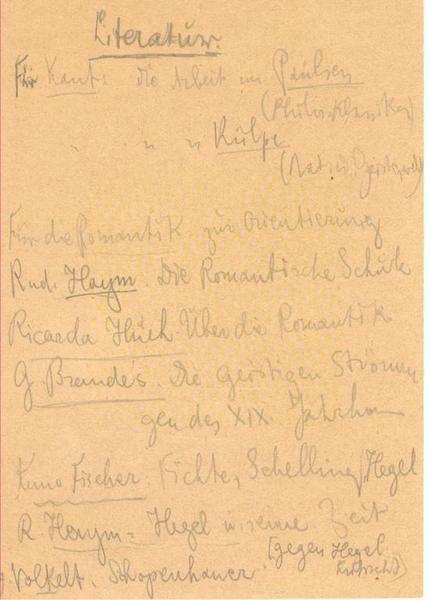 Literatur.
Für Kant: die Arbeit von Paulsen
(Philos. Klassiker)
" " " Külpe
(Natur u. Geistesw.)
Für die Romantik zur Orientierung
Rud. Haym. Die Romantische Schule
Ricarda Huch. Über die Romantik
G Brandes. Die geistigen Strömun
gen des XIX Jahrhun
Kuno Fischer. Fichte, Schelling, Hegel
R Haym = Hegel u. seine Zeit
[gegen Hegel
Volkelt. Schopenhauer